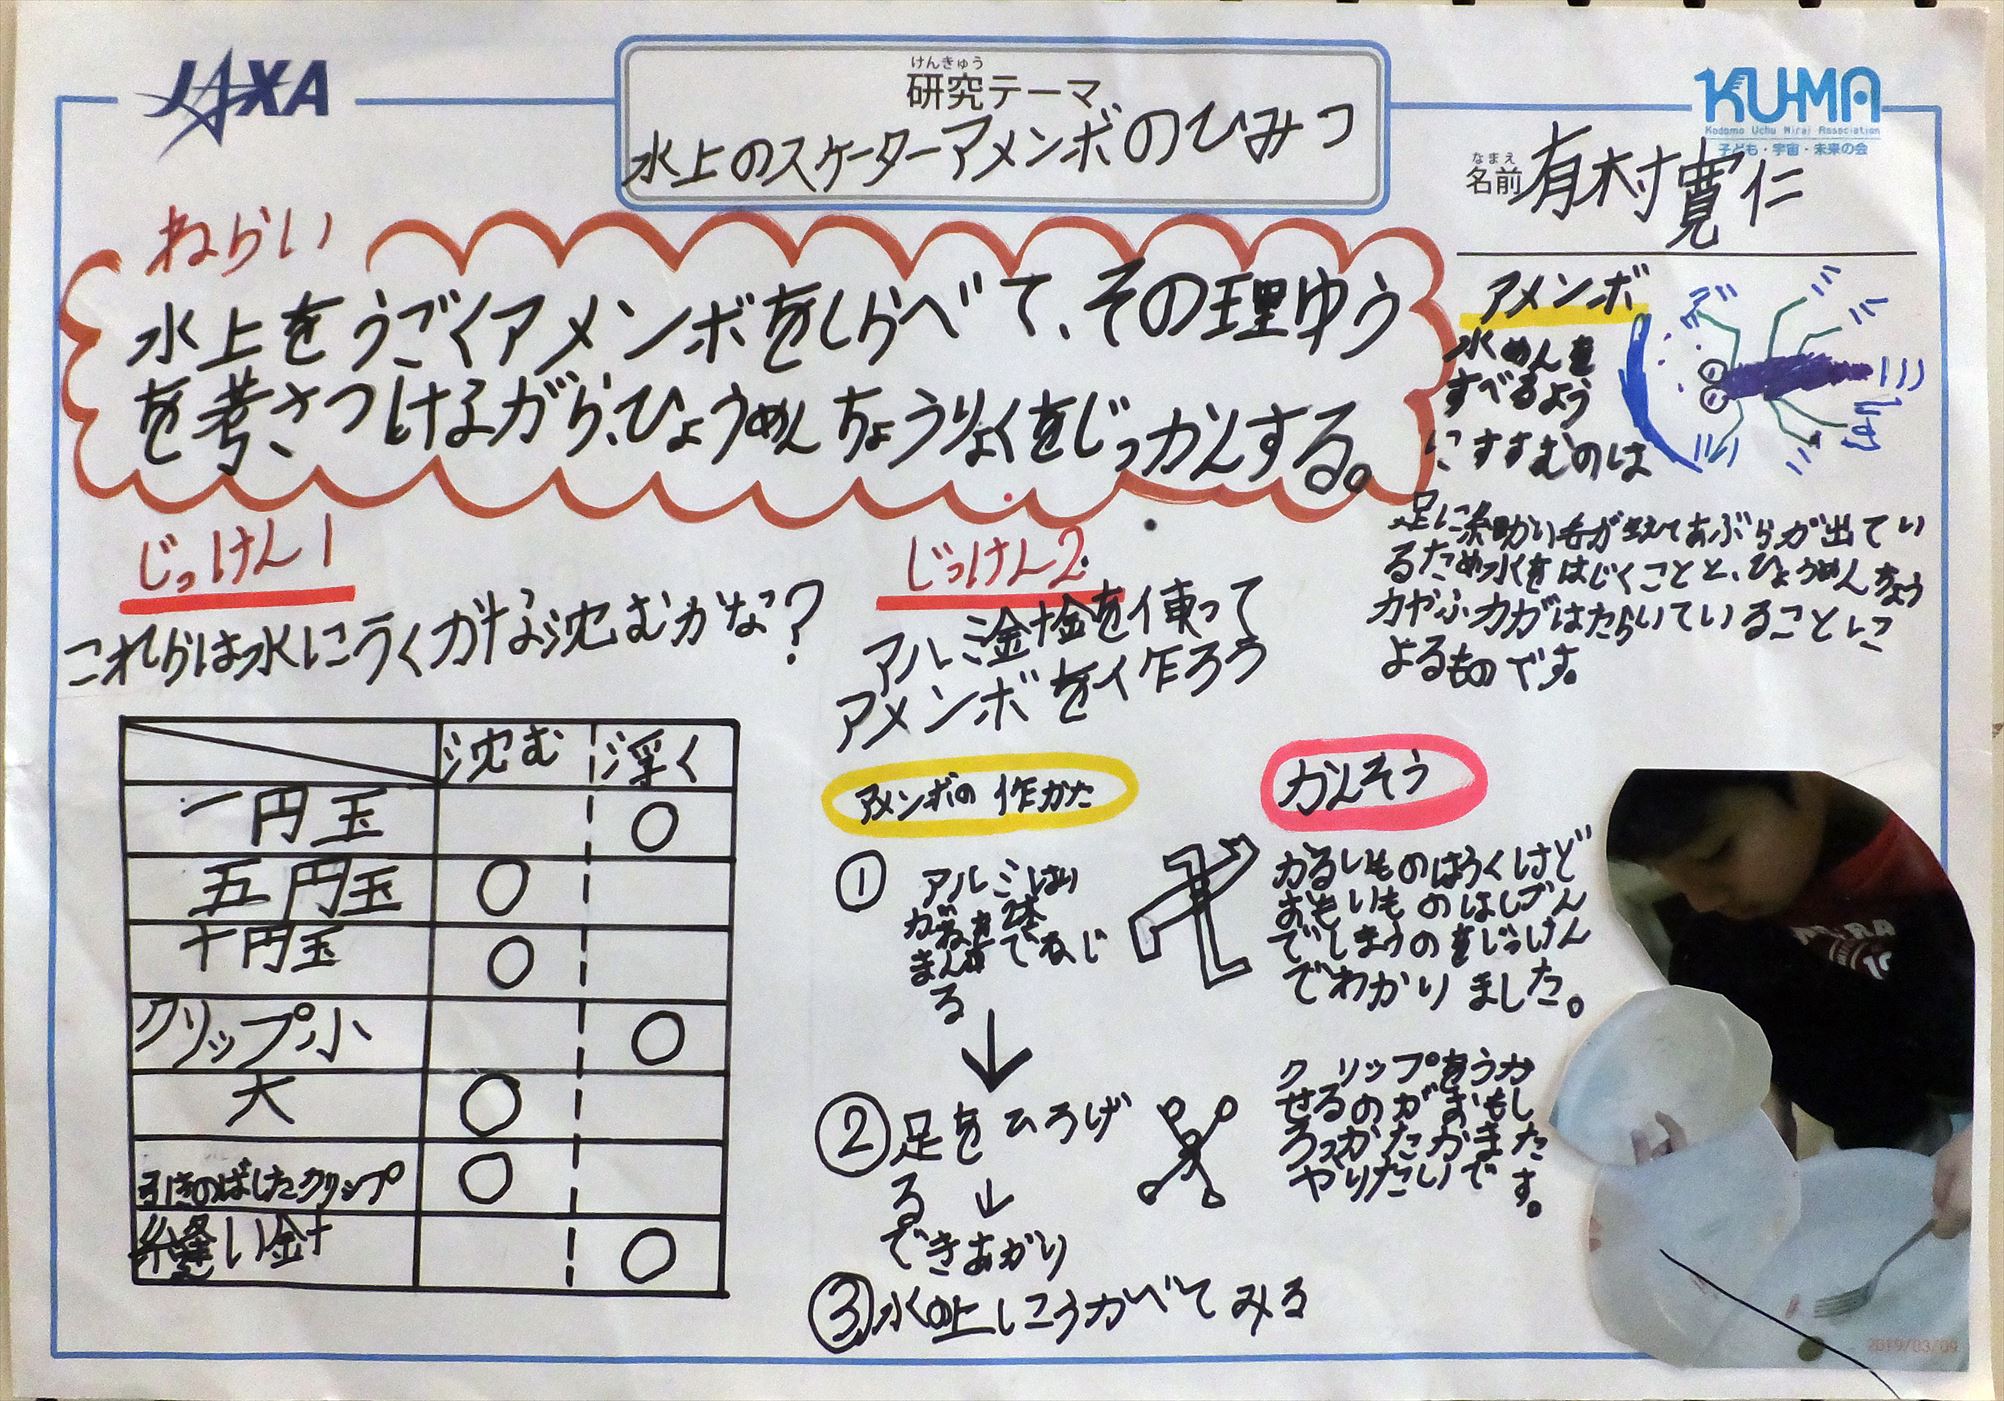 JAXA
けんきゅう
研究テーマ
水上のスケーターアメンボのひみつ
KU-MA
Kodomo Uchu Mirai Association
子ども・宇宙・未来の会
なまえ
名前 有村寛仁
ねらい
水上をうごくアメンボをしらべて、その理ゆう
を考さつけるながら、ひょうめんちょうりょくをじっかんする。
アメンボ
水めんを
すべるよう
にすすむのは
足に細かい毛が生えてあぶらが出てい
るため水をはじくことと、ひょうめんちょう
力やふ力がはたらいていることに
よるものです。
じっけん1
これらは水にうくかな沈むかな?
じっけん2
アルミ針金を使って
アメンボを作ろう
沈む 浮く
一円玉 ○
五円玉 ○
十円玉 ○
クリップ小 ○
大 ○
引きのばしたクリップ ○
縫い針 ○
アメンボの作かた
① アルミはり
がねを2本
まん中でねじ
る
② 足をひろげ
る
できあがり
③ 水の上にうかべてみる
かんそう
かるいものはうくけど
おもいものはしずん
でしまうのをじっけん
でわかりました。
クリップをうか
せるのがおもし
ろっかたかまた
やりたいです。
2019/03/09